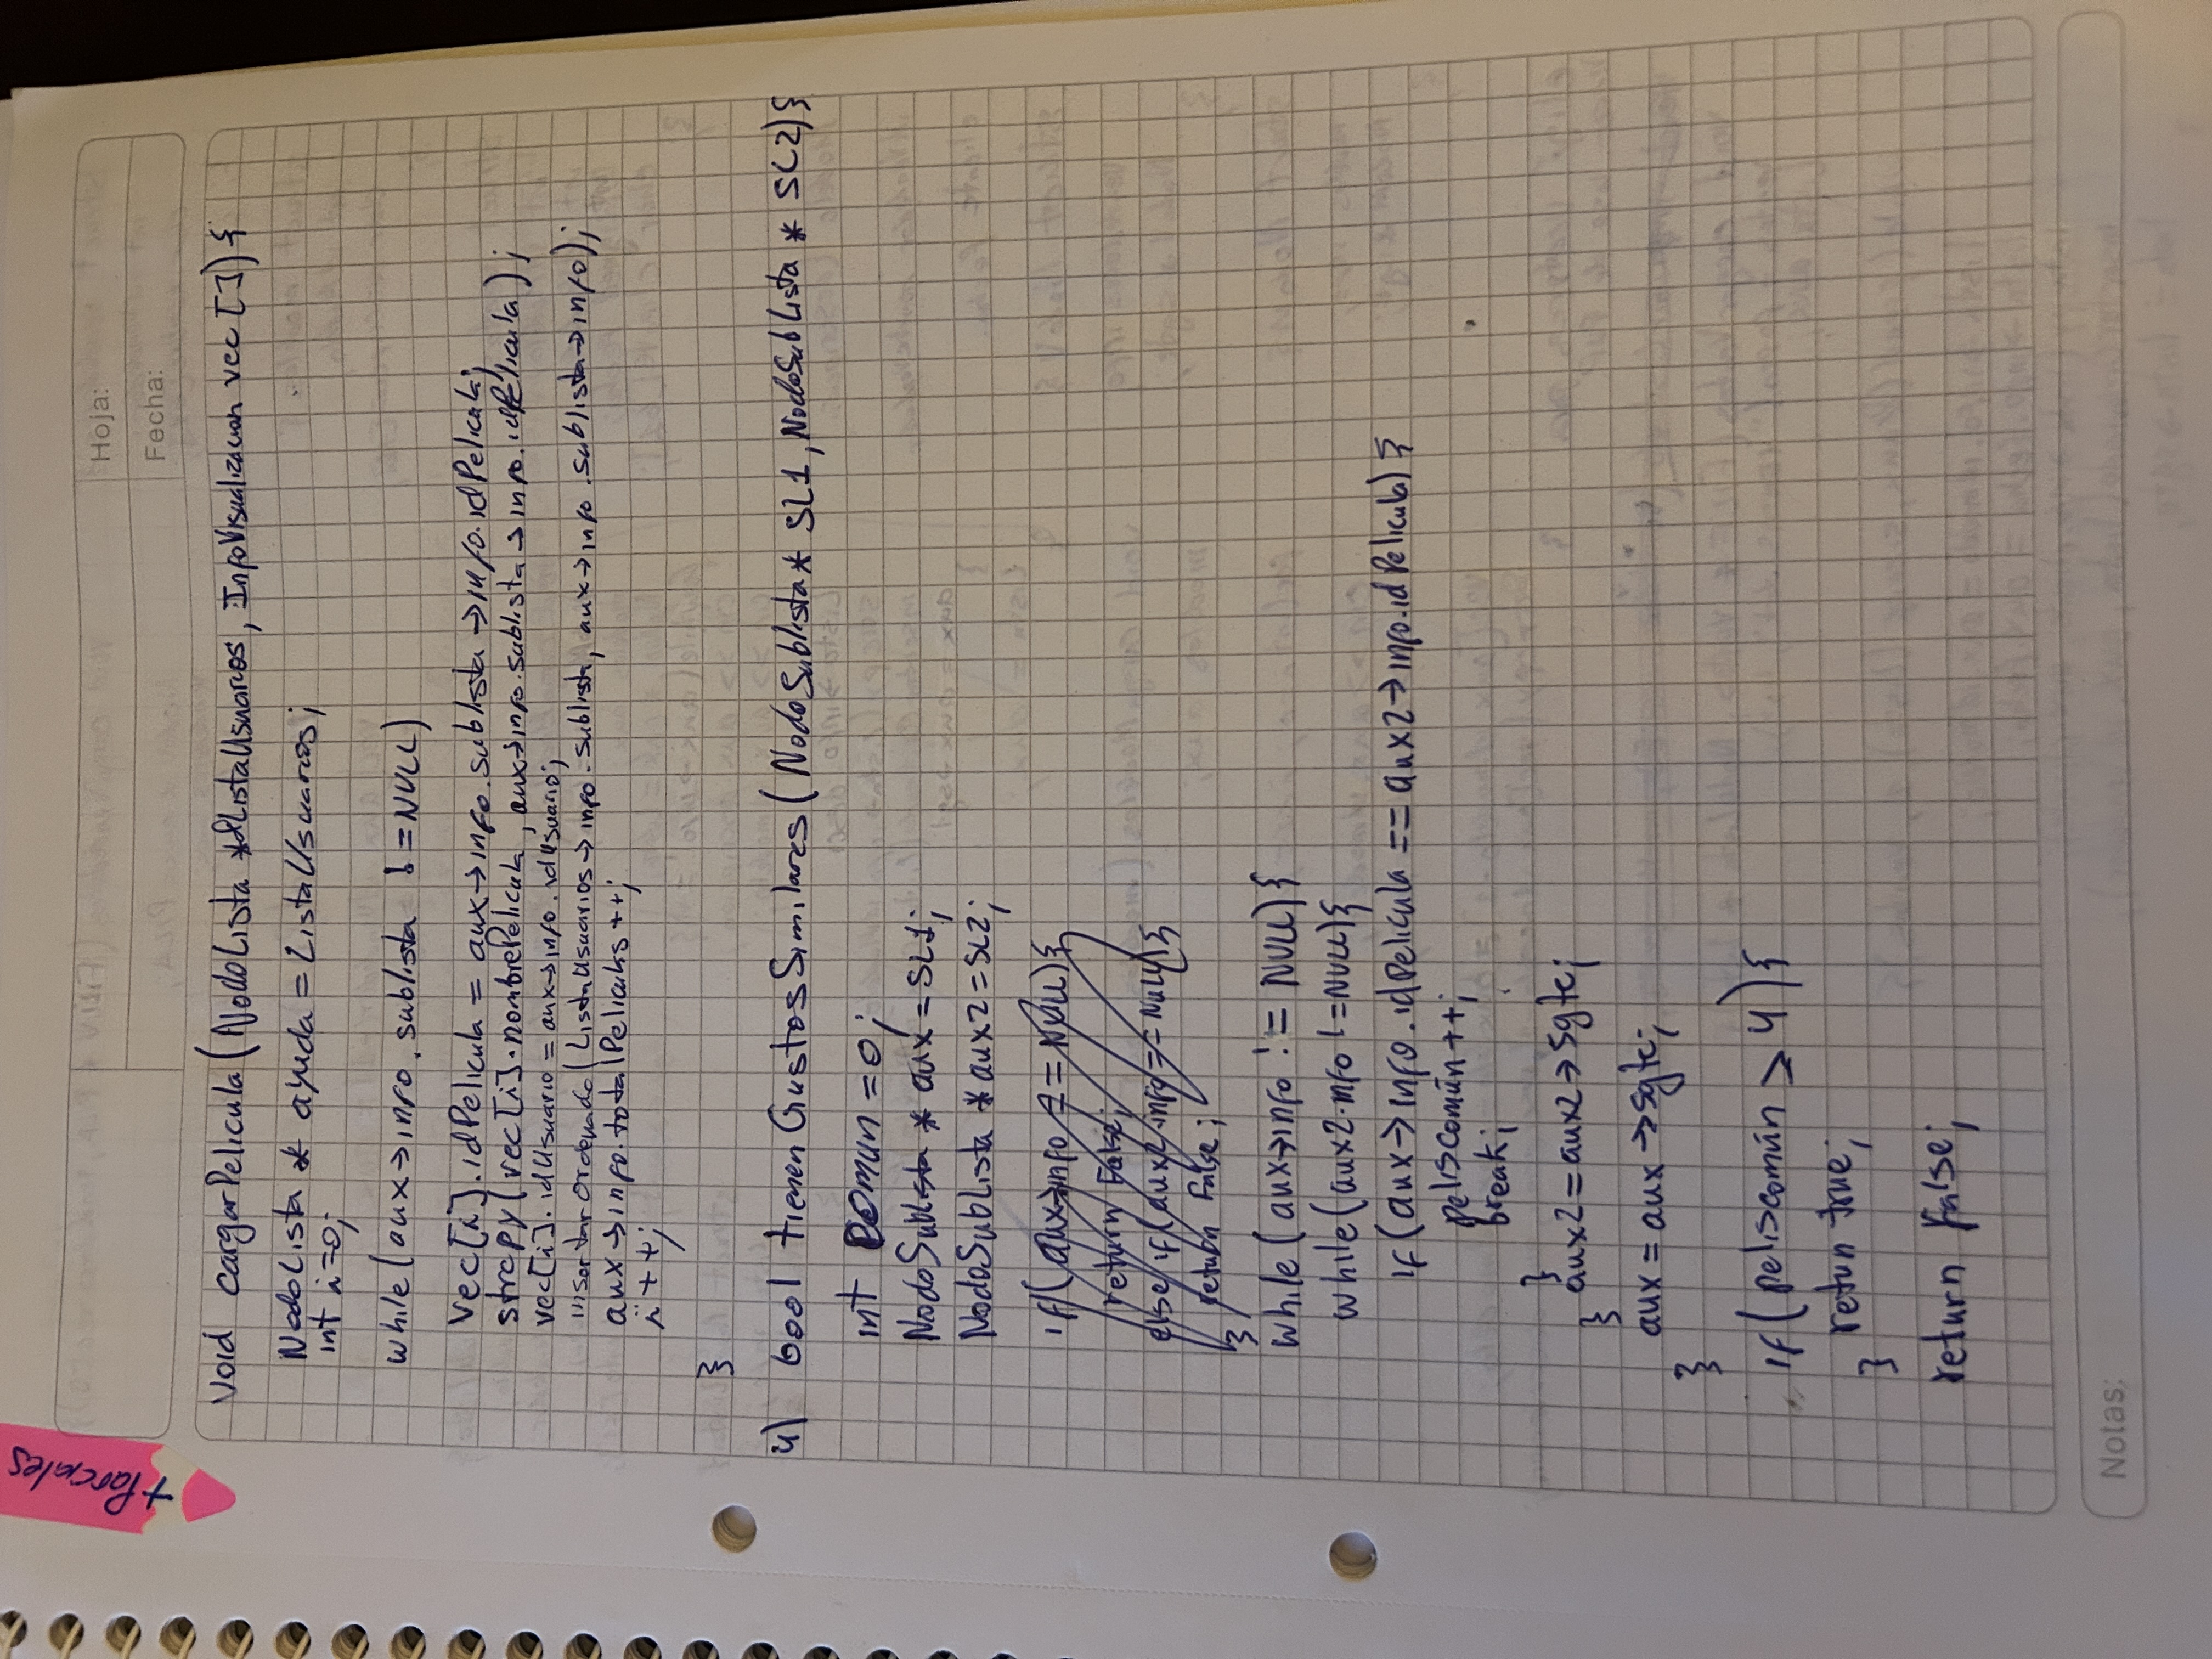 +Parciales
Hoja:
Fecha:
void cargarPelicula(NodoLista *&ListaUsuarios, InfoVisualizacion vec[]){
NodoLista * ayuda = ListaUsuarios;
int i=0;
while(aux->info.sublista != NULL)
vec[i].idPelicula = aux->info.sublista->info.idPelicula;
strcpy(vec[i].nombrePelicula, aux->info.sublista->info.idPelicula);
vec[i].idUsuario = aux->info.idUsuario;
insertarOrdenado(ListaUsuarios->info.sublista, aux->info.sublista->info);
aux->info.totalPeliculas++;
i++;
}
4) bool tienenGustosSimilares(NodoSublista* SL1, NodoSubLista * SL2){
int comun = 0;
NodoSublista * aux = SL1;
NodoSubLista * aux2 = SL2;
if(aux->info == NULL){
return False;
else if(aux2.info == NULL){
return False;
}
while(aux->info != NULL){
while(aux2.info != NULL){
if(aux->info.idPelicula == aux2->info.idPelicula){
peliscomún++;
break;
}
aux2 = aux2->sgte;
}
aux = aux->sgte;
}
if(peliscomún > 4){
retun true;
}
return False;
Notas: